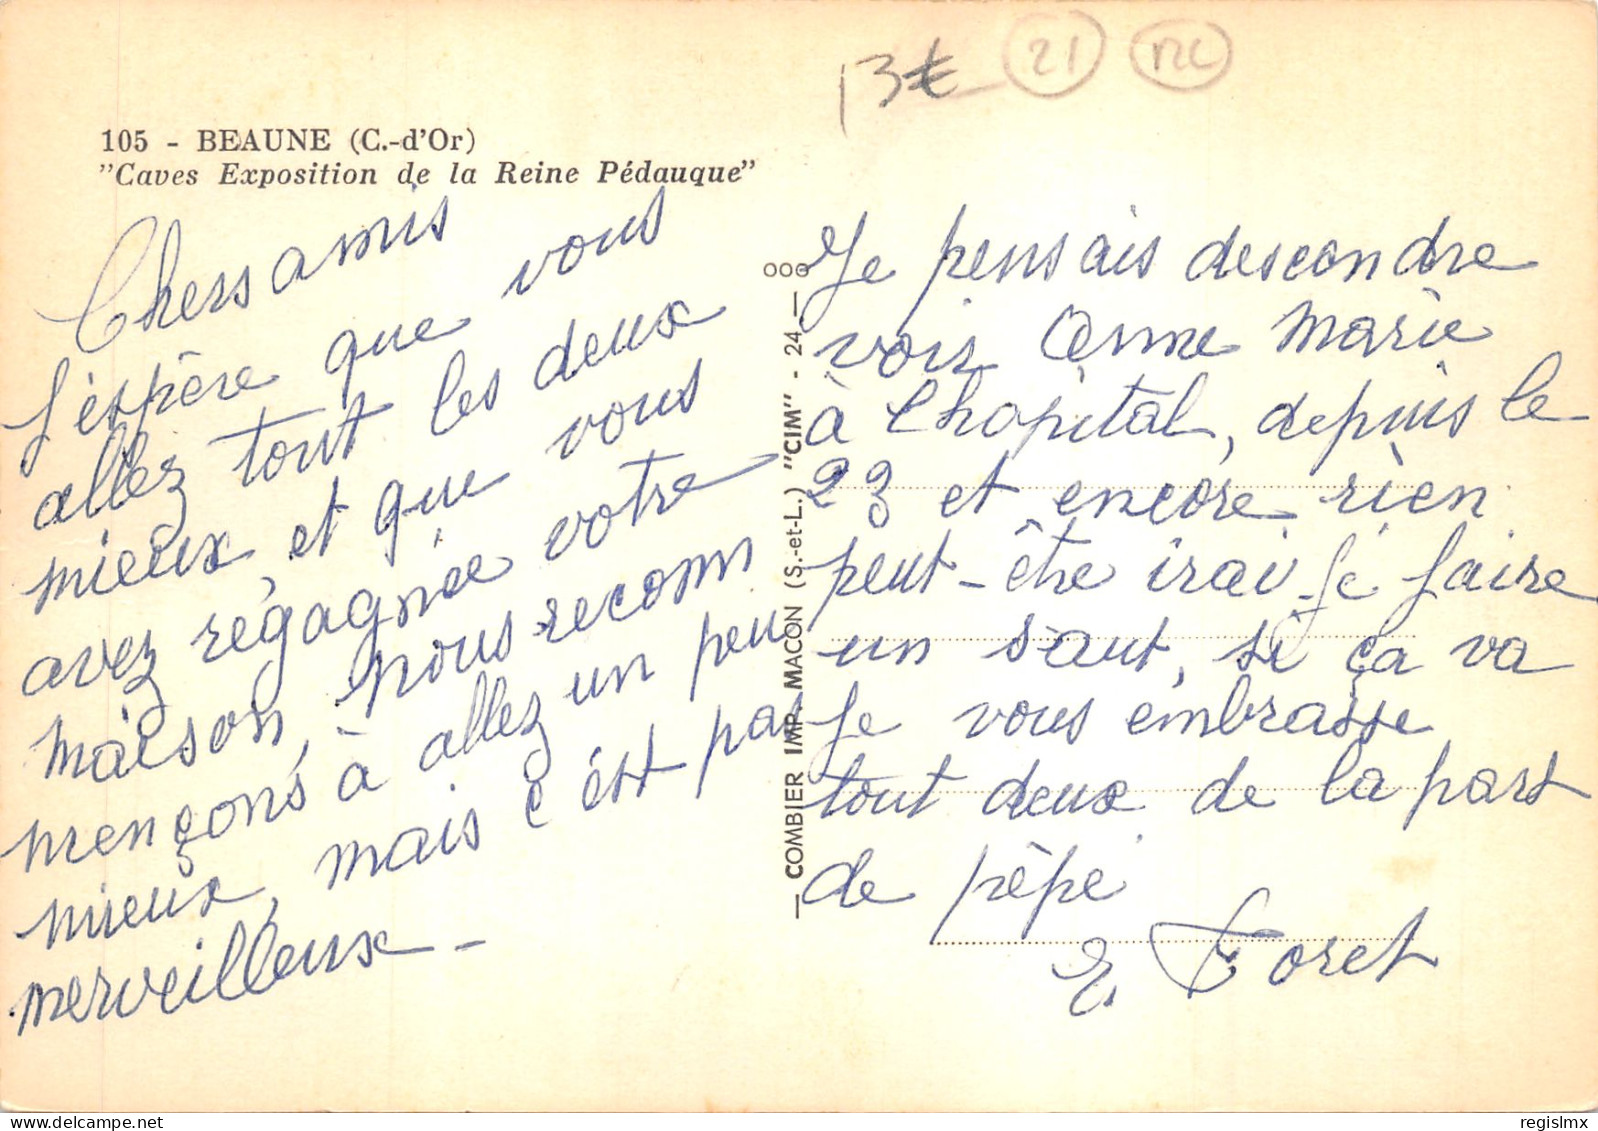 13€ 21
105 - BEAUNE (C.-d'Or)
"Caves Exposition de la Reine Pédauque"
Chers amis
J'éspère que vous
allez tout les deux
mieux, et que vous
avez régagnée votre
maison, nous recomm
mençons à allez un peu
mieux, mais c'est pas
merveilleux -
— COMBIER IMP. MACON (S.-et-L.) "CIM" - 24 — ooo
Je pensais descendre
voir Anne Marie
à l'hopital, depuis le
23 et encore rien
peut-être irai-je faire
un saut, si ça va
Je vous embrasse
tout deux de la part
de pépé
E. Foret
www.delcampe.net
regislmx